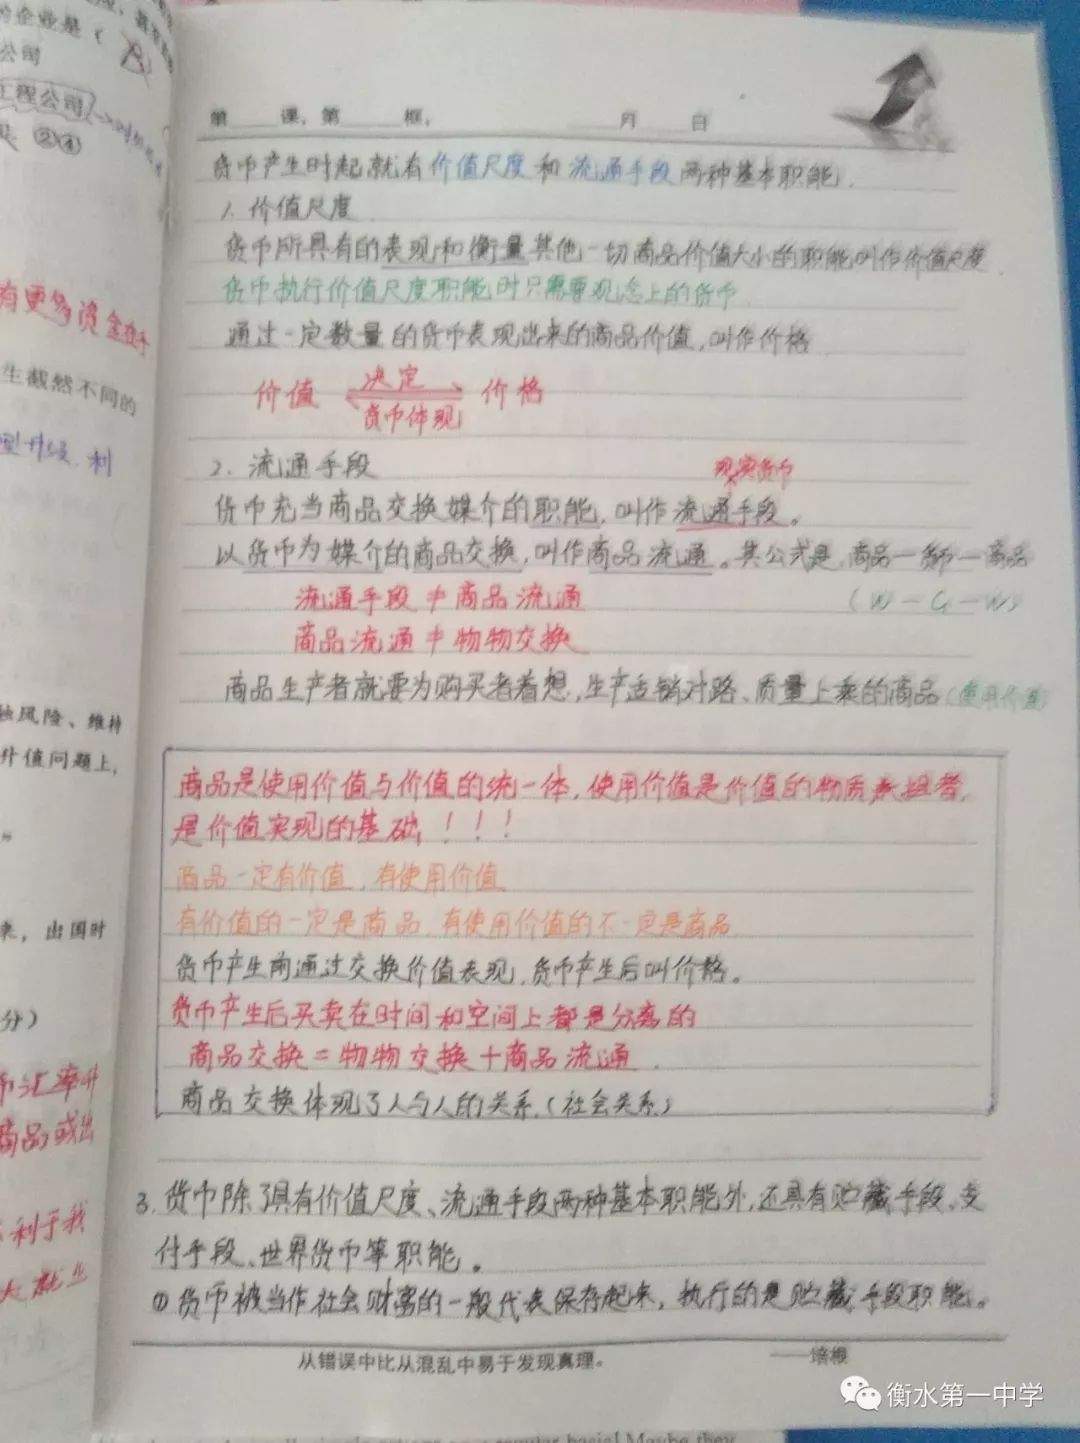 的企业是（
B
公司
工程公司
是 ②④
有更多资金在手
生截然不同的
型升级，利
风险、维持
升值问题上，
来，出国时
分）
币汇率升
商品或出
利于我
大就业
第 课，第 框， 月 日
货币产生时起就有价值尺度和流通手段两种基本职能.
1. 价值尺度
货币所具有的表现和衡量其他一切商品价值大小的职能叫作价值尺度
货币执行价值尺度职能时只需要观念上的货币
通过一定数量的货币表现出来的商品价值，叫作价格
价值 决定 价格
货币体现
2. 流通手段 现实货币
货币充当商品交换媒介的职能，叫作流通手段。
以货币为媒介的商品交换，叫作商品流通。其公式是，商品一货币一商品
流通手段≠商品流通 (W-G-W)
商品流通≠物物交换
商品生产者就要为购买者着想，生产适销对路、质量上乘的商品(使用价值)
商品是使用价值与价值的统一体，使用价值是价值的物质承担者，
是价值实现的基础！！！
商品一定有价值，有使用价值
有价值的一定是商品，有使用价值的不一定是商品
货币产生前通过交换价值表现，货币产生后叫价格。
货币产生后买卖在时间和空间上都是分离的
商品交换=物物交换+商品流通.
商品交换体现了人与人的关系.(社会关系)
3. 货币除了具有价值尺度、流通手段两种基本职能外，还具有贮藏手段、支
付手段、世界货币等职能。
①货币被当作社会财富的一般代表保存起来，执行的是贮藏手段职能。
从错误中比从混乱中易于发现真理。 ——培根
衡水第一中学